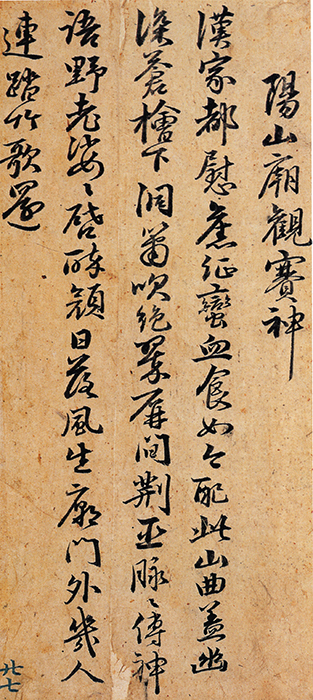 陽山廟觀賽神
漢家都慰舊征蠻血食如今配此山曲蓋幽
深蒼檜下洞簫吹絕翠屏間荊巫脉〻傳神
語野老娑〻啓醉顏日落風生廟門外幾人
連蹋竹歌還
廿七